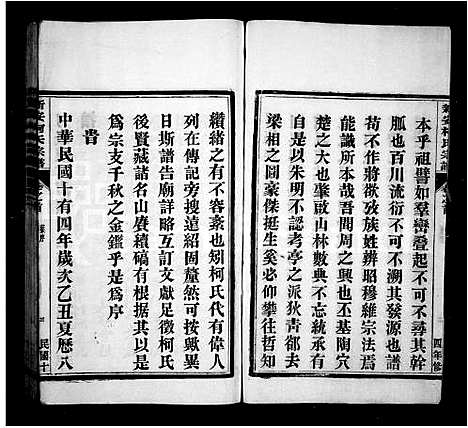 新安柯氏宗譜
本乎祖譬如羣巒澄起不可不尋其幹
脈也百川流行不可不討其發源也譜
苟不作將歛族姓辨昭穆雖宗法焉
能識所本哉吾間周之興也丕基陶穴
漢之昌也人獻啟山林數典不忘統承有
是以朱明不認考亭之派狄青郤去
梁相之圖豪傑挺生奚必仰攀往哲
四年修
纘緒之有不容紊也矧柯氏代有偉人
列在傳記旁搜遠紹固釐然可挨厥異
日斯譜告廟詳略互訂文獻足徵柯氏
後賢藏諸名山賡續有根据其是以
爲宗支千秋之金鑑乎是爲序
旹
中華民國十有四年歲次乙丑夏曆八
新安柯氏宗譜
民國十